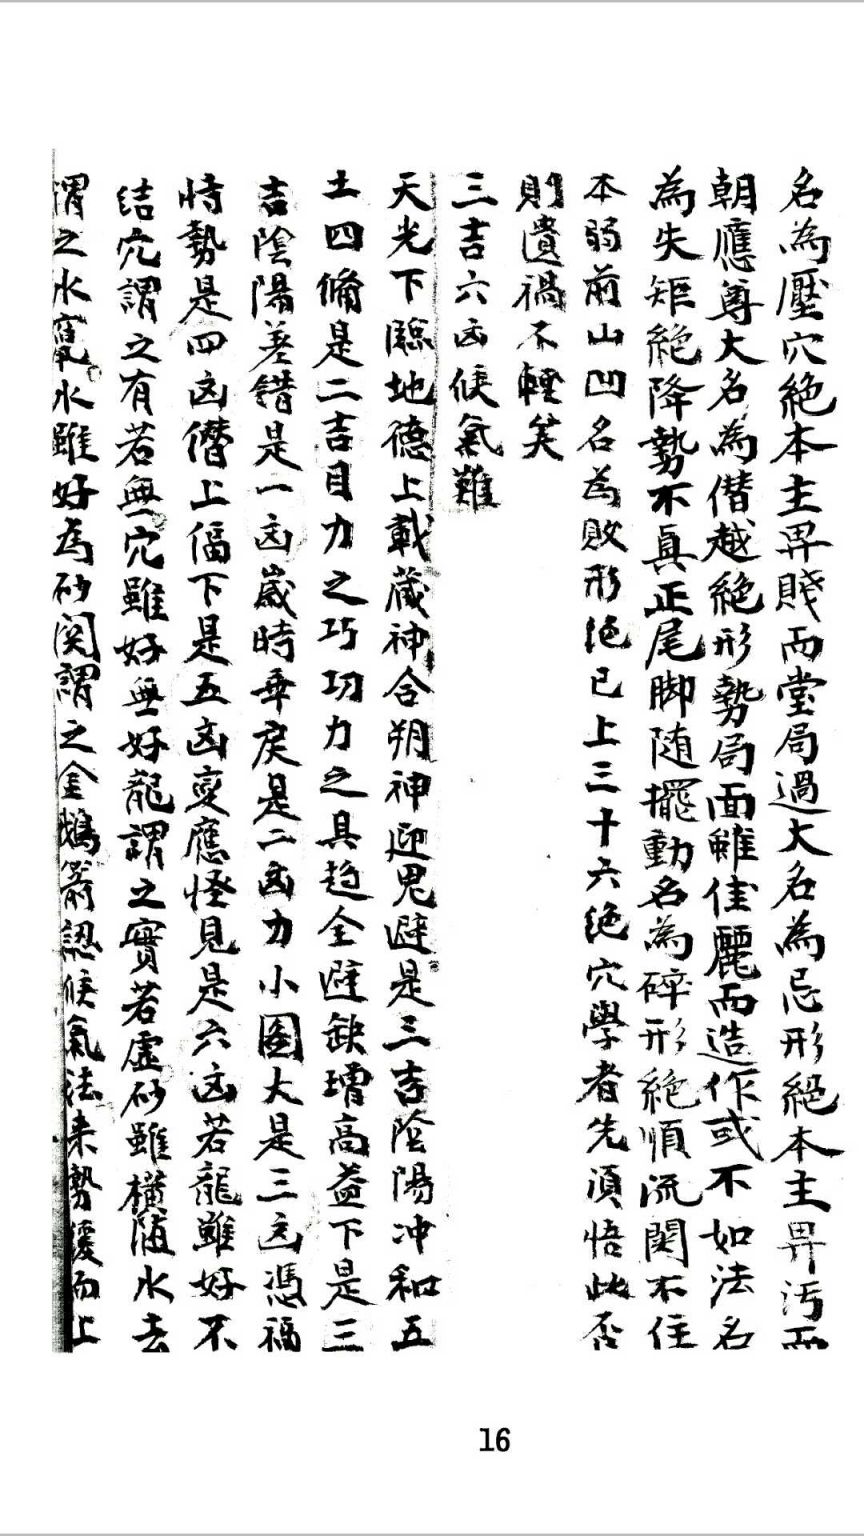 名為壓穴絶本主畀賤而堂局過大名為忌形絕本主畀污而
朝應尊大名為僭越絕形勢局面雖佳麗而造作或不如法名
為失矩絕降勢不真正尾脚随擺動名為碎形絕順流関不住
本弱前山凹名為敗形绝已上三十六绝穴學者先湏悟此否
則遺禍不輕矣
三吉六凶候氣難
天光下臨地德上載蔵神合朔神迎鬼避是三吉陰陽冲和五
土四備是二吉目力之巧功力之具趋全避缺增高益下是三
吉陰陽差錯是一凶歲時乖戾是二凶力小圖大是三凶憑福
恃勢是四凶僭上偪下是五凶变應怪見是六凶若龍雖好不
結穴謂之有若無穴雖好無好龍謂之實若虛砂雖橫随水去
謂之水竄水雖好為砂関謂之金鵝箭認候氣法来勢優而上
16